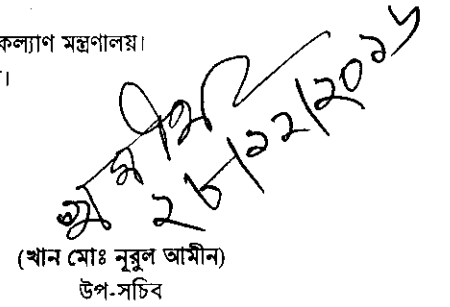 কল্যাণ মন্ত্রণালয়।
।
২৮/১২/২০১৬
(খান মোঃ নূরুল আমীন)
উপ-সচিব